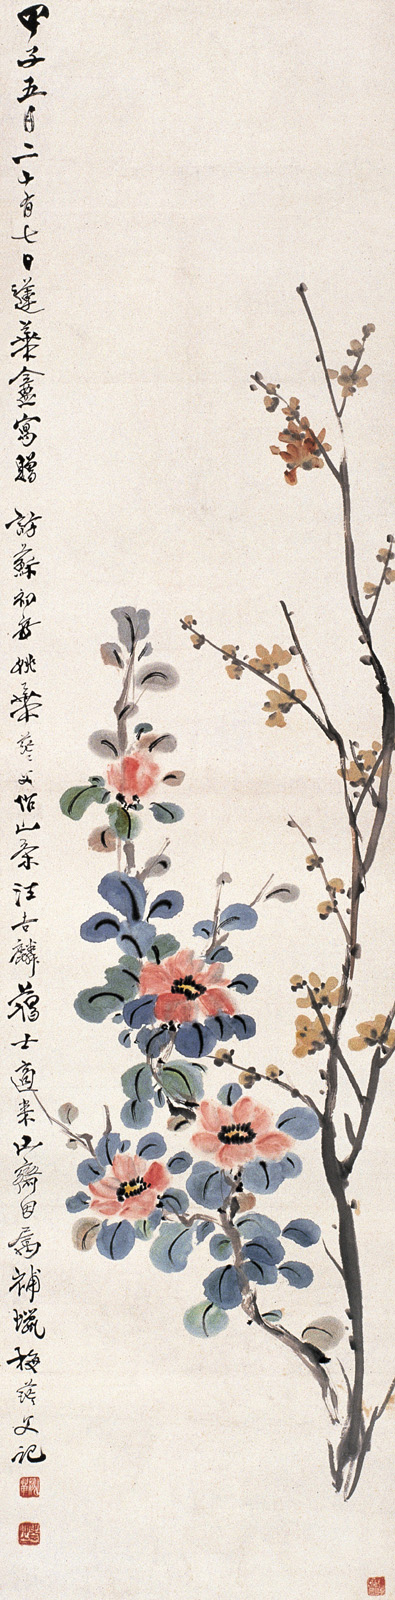 甲子五月二十有七日蓮華盦寫贈 蘇初 姚華茫父作山茶汪吉麟藹士適来山齋因属補蠟梅茫父記